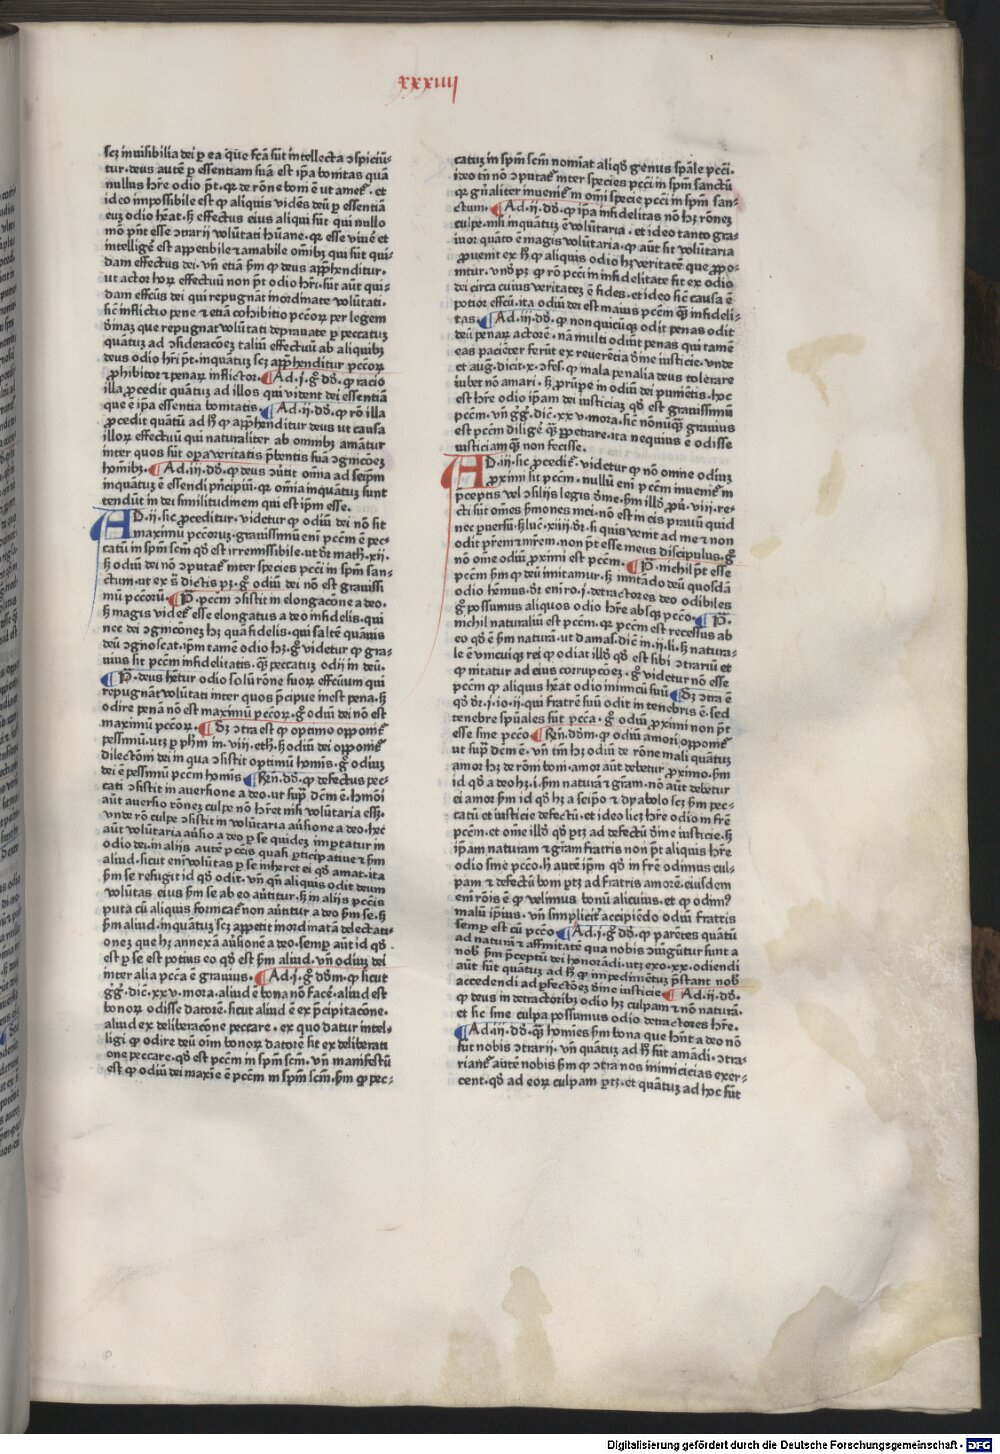 xxxiiij
scꝫ inuisibilia dei ꝑ ea que fcā sūt intellecta ɔspiciū-
tur. deus autē ꝑ essentiam suā est ip̄a bonitas quā
nullus hr̄e odio pt̄. qꝛ de rōne boni ē ut ameƭ. et
ideo impossibile est ꝙ aliquis vidēs deū ꝑ essentiā
eum odio hēat. ꝫ effectus eius aliqui sūt qui nullo
mō pn̄t esse ɔtrarij volūtati hūane. qꝛ esse viuē et
intelligē est appetibile ⁊ amabile om̄ibꝫ qui sūt qui-
dam effectus dei. vn̄ etiā ẜm ꝙ deus app̄henditur.
ut actor hoꝝ effectuū non pt̄ odio hr̄i. sūt aūt qui-
dam effc̄us dei qui repugnāt inordinate volūtati.
sic inflictio pene ⁊ etiā cohibitio pcc̄oꝝ per legem
diuinaꝫ que repugnat volūtati deprauate ꝑ peccatuꝫ
quātuꝫ ad ɔsideracōeꝫ taliū effectuū ab aliquibꝫ
deus odio hr̄i pt̄. inquātuꝫ scꝫ app̄henditur pcc̄oꝝ
ꝓhibitor ⁊ penaꝝ inflictor. Ad .j. gͦ dō. ꝙ racio
illa ꝓcedit quātuꝫ ad illos qui vident dei essentiā
que ē ip̄a essentia bonitatis. Ad .ij. dō. ꝙ rō illa
ꝓcedit quātū ad ꝫ ꝙ app̄henditur deus ut causa
illoꝝ effectuū qui naturaliter ab omnibꝫ amātur
inter quos sūt opa veritatis p̄bentis suā ɔgnicōeꝫ
hoīibꝫ. Ad .iij. dō. ꝙ deus ɔūtit om̄ia ad seip̄m
inquātuꝫ ē essendi pn̄cipiū. qꝛ om̄ia inquātuꝫ sunt
tendūt in dei similitudinem qui est ip̄m esse.
AD .ij. sic ꝓceditur. videtur ꝙ odiū dei nō sit
maximū pcc̄oruꝫ. grauissimū eni pcc̄m ē pec-
catū in spm̄ scm̄ qd̄ est irremissibile. ut dr̄ math. xij.
ꝫ odiū dei nō ɔputaƭ inter species pcc̄i in spm̄ san-
ctum. ut ex s̄ dictis pꝫ. gͦ odiū dei nō est grauissi
mū pcc̄oꝝ. P̄. pcc̄m ɔsistit in elongacōne a deo.
ꝫ magis videƭ esse elongatus a deo infidelis. qui
nec dei ɔgnicōneꝫ hꝫ quā fidelis. qui saltē quāuis
deū ɔgnoscat. ip̄m tamē odio hꝫ. gͦ videtur ꝙ gra-
uius sit pcc̄m infidelitatis. qꝫ peccatuꝫ odij in deū.
P̄. deus hētur odio solū rōne suoꝝ effectuum qui
repugnāt volūtati inter quos p̄cipue inest pena. ꝫ
odire penā nō est maximū pcc̄oꝝ. gͦ odiū dei nō est
maximū pcc̄oꝝ. Sꝫ ɔtra est ꝙ optimo opponiƭ
pessimū. utꝫ ꝑ phm̄ in .viij. eth. ꝫ odiū dei opponiƭ
dilectōni dei in qua ɔsistit optimū hoīnis. gͦ odiuꝫ
dei ē pessimū pcc̄m hoīnis Rn̄. dō. ꝙ defectus pec-
cati ɔsistit in auersione a deo. ut supͣ dc̄m ē. hmōi
aūt auersio rōneꝫ culpe nō hr̄et nisi volūtaria eēt.
vnde rō culpe ɔsistit in volūtaria aūsione a deo. hec
aūt volūtaria aūsio a deo ꝑ se quideꝫ importatur in
odio dei. in alijs autē pcc̄is quasi ꝑticipatiue ⁊ ẜm
aliud. sicut eni volūtas ꝑ se inheret ei qd̄ amat. ita
ẜm se refugit id qd̄ odit. vn̄ qn̄ aliquis odit deum
volūtas eius ẜm se ab eo aūtitur. ꝫ in alijs pcc̄is
puta cū aliquis fornicaƭ non aūtitur a deo ẜm se. ꝫ
ẜm aliud. inquātuꝫ scꝫ appetit inordinatā delectati-
oneꝫ que hꝫ annexā aūsionē a deo. semp̄ aūt id qd̄
est ꝑ se est potius eo qd̄ est ẜm aliud. vn̄ odiuꝫ dei
inter alia pcc̄a ē grauius. Ad .j. gͦ dōm. ꝙ sicut
gͦgͦ. dic̄. xxv. mora. aliud ē bona nō facē. aliud est
bonoꝝ odisse datorē. sicut aliud ē ex p̄cipitacōne.
aliud ex deliberacōne peccare. ex quo datur intel-
ligi ꝙ odire deū oīm bonoꝝ datorē sit ex deliberati
one peccare. qd̄ est pcc̄m in spm̄ scm̄. vn̄ manifestū
est ꝙ odiū dei maxīe ē pcc̄m in spm̄ scm̄. ẜm ꝙ pec-
catuꝫ in spm̄ scm̄ nomīat aliqd̄ genus spāle pcc̄i.
ideo tn̄ nō ɔputaƭ inter species pcc̄i in spm̄ sanctū
qꝛ gn̄aliter inueniƭ in om̄i specie pcc̄i in spm̄ san-
ctum. Ad .ij. dō. ꝙ ip̄a infidelitas nō hꝫ rōneꝫ
culpe. nisi inquātuꝫ ē voluntaria. et ideo tanto gra-
uior quāto ē magis volūtaria. ꝙ aūt sit volūtaria
ꝓuenit ex ꝫ ꝙ aliquis odio hꝫ veritatē que ꝓpo-
nitur. vnō pꝫ ꝙ rō pcc̄i in infidelitate sit ex odio
dei circa cuius veritateꝫ ē fides. et ideo sic̄ causa ē
potior effcū. ita odiū dei est maius pcc̄m qꝫ infideli-
tas. Ad .iij. dō. ꝙ non quicūqꝫ odit penas odit
deū penaꝝ actorē. nā multi odiūt penas qui tamē
eas paciēter ferūt ex reuerētia diuīe iusticie. vnde
et aug. dicit. x. ɔfes. ꝙ mala penalia deus tolerare
iubet nō amari. ꝫ prūpe in odiū dei punientis. hoc
est hr̄e odio ip̄am dei iusticiaꝫ qd̄ est grauissimū
pcc̄m. vn̄ gͦgͦ. dic̄. xxv. mora. sic̄ nōnūqꝫ grauius
est pcc̄m diligē qꝫ ꝑpetrare. ita nequius ē odisse
iusticiam qꝫ non fecisse.
AD .iij. sic ꝓcediƭ. videtur ꝙ nō omne odiuꝫ
ꝓximi sit pcc̄m. nullū eni pcc̄m inueniƭ in
p̄ceptis vel ɔsilijs legis diuīe. ẜm illd̄ ꝓū. viij. re-
cti sūt om̄es ẜmones mei. nō est in eis prauū quid
nec ꝑuersū. ꝫ luc̄. xiiij. dr̄. si quis venit ad me ⁊ non
odit pr̄em ⁊ mr̄em. non pt̄ esse meus discipulus. gͦ
nō om̄e odiū ꝓximi est pcc̄m. P̄. nichil pt̄ esse
pcc̄m ẜm ꝙ deū imitamur. ꝫ imitādo deū quosdā
odio hēmus. dr̄ eni ro. j. detractores deo odibiles
gͦ possumus aliquos odio hr̄e absqꝫ pcc̄o. P̄.
nichil naturaliū est pcc̄m. qꝛ pcc̄m est recessus ab
eo qd̄ ē ẜm naturā. ut damas. dic̄ in .ij. li. ꝫ natura-
le ē vnicuiqꝫ rei ꝙ odiat illd̄ qd̄ est sibi ɔtrariū et
ꝙ nitatur ad eius corrupcōeꝫ. gͦ videtur nō esse
pcc̄m ꝙ aliquis hēat odio inimicū suū Sꝫ ɔtra ē
qd̄ dr̄. j. io. ij. qui fratrē suū odit in tenebris ē. sed
tenebre spūales sūt pcc̄a. gͦ odiū ꝓximi non pt̄
esse sine pcc̄o Rn̄. dōm. ꝙ odiū amori opponiƭ
ut supͣ dc̄m ē. vn̄ tm̄ hꝫ odiū de rōne mali quātuꝫ
amor hꝫ de rōni boni. amor aūt debetur ꝓximo. ẜm
id qd̄ a deo hꝫ. i. ẜm naturā ⁊ gr̄am. nō aūt debetur
ei amor ẜm id qd̄ hꝫ a seip̄o ⁊ dyabolo scꝫ ẜm pec-
catū et iusticie defectū. et ideo licꝫ hr̄e odio in frē
pcc̄m. et om̄e illd̄ qd̄ ptꝫ ad defectū diuīe iusticie. ꝫ
ip̄am naturam ⁊ gr̄am fratris non pt̄ aliquis hr̄e
odio sine pcc̄o. ꝫ autē ip̄m qd̄ in frē odimus cul-
pam ⁊ defectū boni ptꝫ ad fratris amorē. eiusdem
eni rōnis ē ꝙ velimus bonū alicuius. et ꝙ odimꝰ
malū ip̄ius. vn̄ simpliciƭ accipiēdo odiū fratris
semp̄ est cū pcc̄o Ad .j. gͦ dō. ꝙ parētes quātū
ad naturā ⁊ affinitatē qua nobis ɔiūgūtur sunt a
nob̄ ẜm p̄ceptū dei honorādi. utꝫ exo. xx. odiendi
aūt sūt quātuꝫ ad ꝫ ꝙ impedimētuꝫ p̄stant nob̄
accedendi ad ꝑfectōeꝫ diuīe iusticie Ad .ij. dō.
ꝙ deus in detractoribꝫ odio hꝫ culpam ⁊ nō naturā.
et sic sine culpa possumus odio detractores hr̄e.
Ad .iij. dō. qꝫ hoīnies ẜm bona que hn̄t a deo nō
sūt nobis ɔtrarij. vn̄ quātuꝫ ad ꝫ sūt amādi. ɔtra-
rianƭ autē nobis ẜm ꝙ ɔtra nos inimicicias exer-
cent. qd̄ ad eoꝝ culpam ptꝫ. et quātuꝫ ad hoc sūt
Digitalisierung gefördert durch die Deutsche Forschungsgemeinschaft - DFG